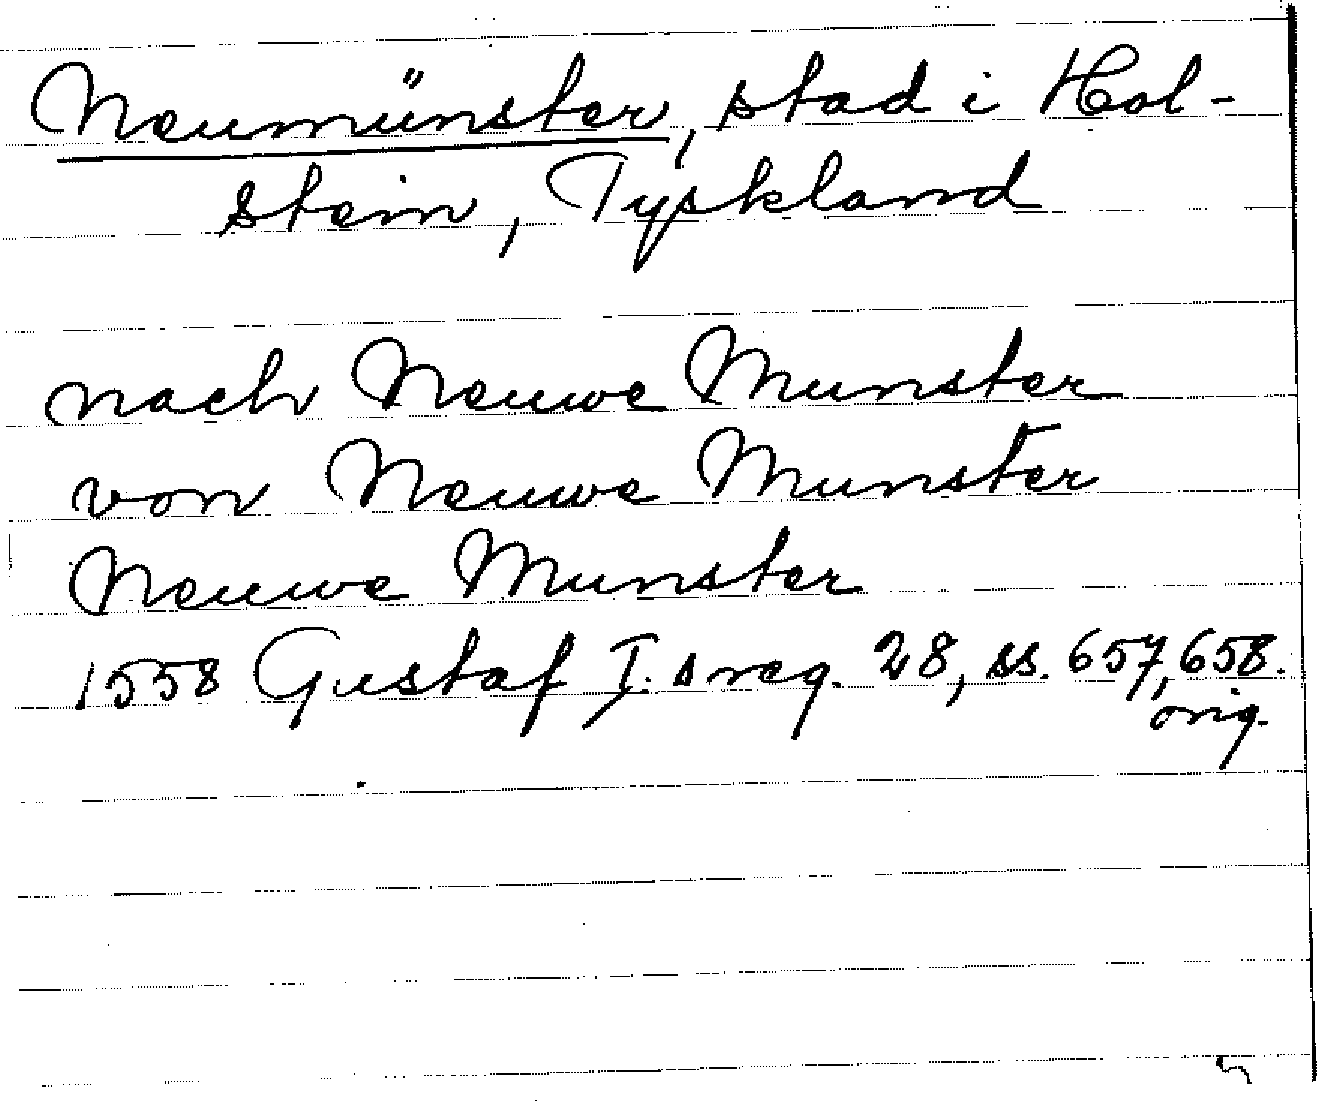 Neumünster, stad i Hol-
stein, Tyskland
nach Neuwe Munster
von Neuwe Munster
Neuwe Munster
1558 Gustaf I.s reg. 28, ss. 657, 658.
orig.